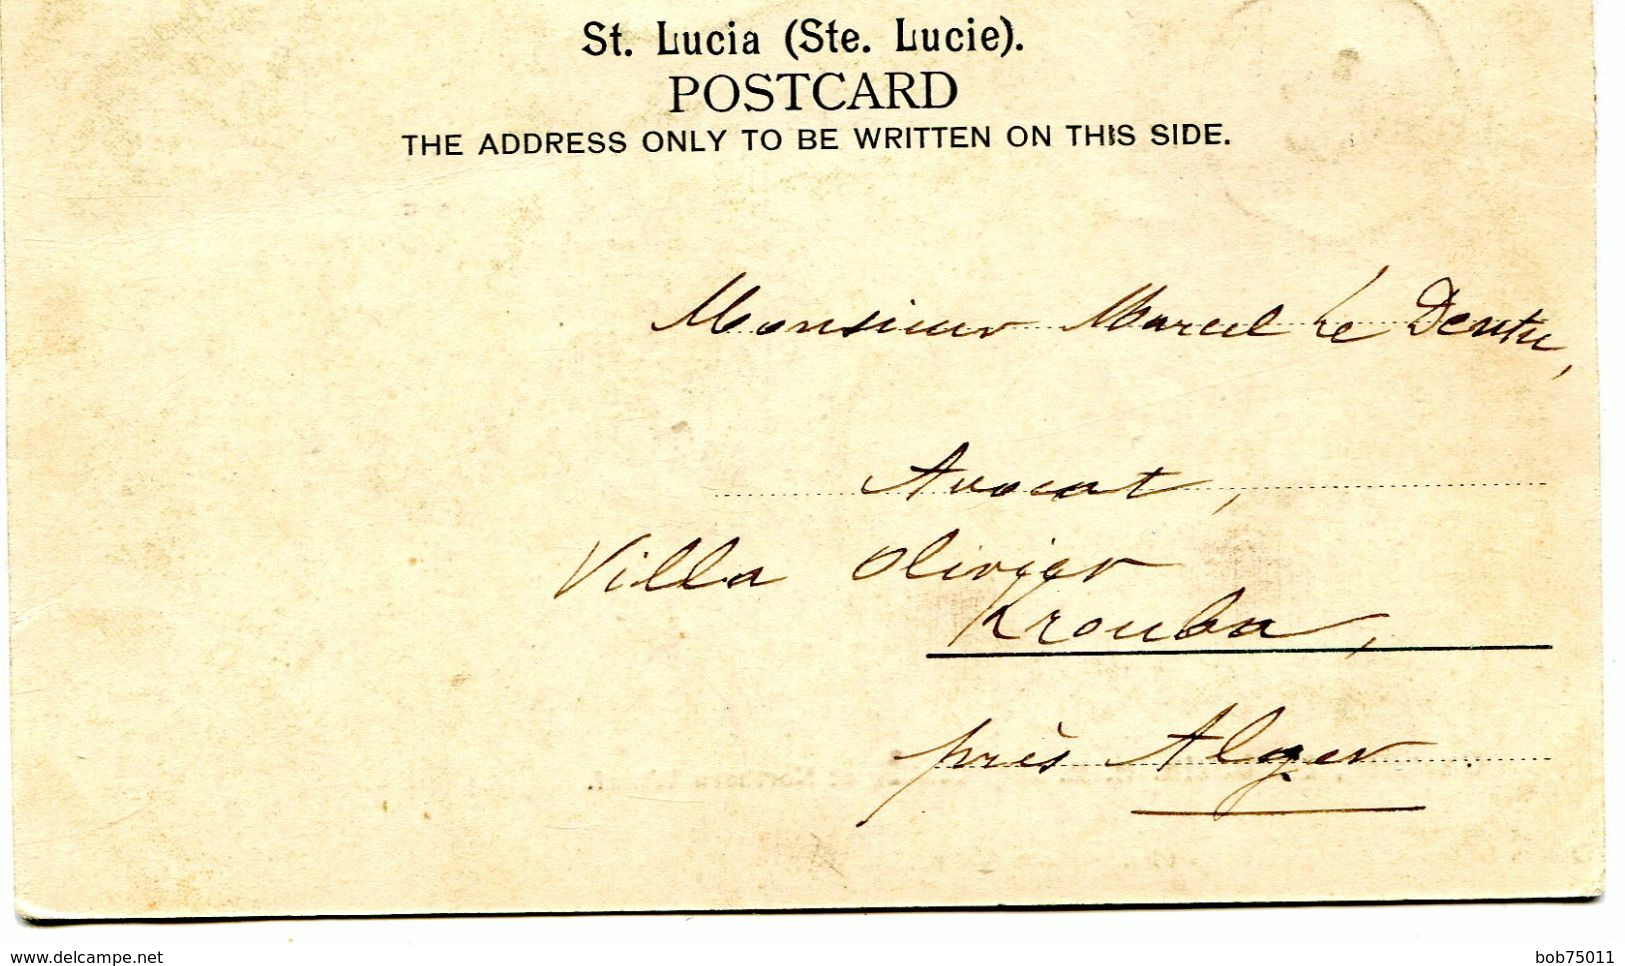 St. Lucia (Ste. Lucie).
POSTCARD
THE ADDRESS ONLY TO BE WRITTEN ON THIS SIDE.
Monsieur Marcel Le Dentu,
Avocat,
Villa Olivier
Krouba,
près Alger
www.delcampe.net
bob75011